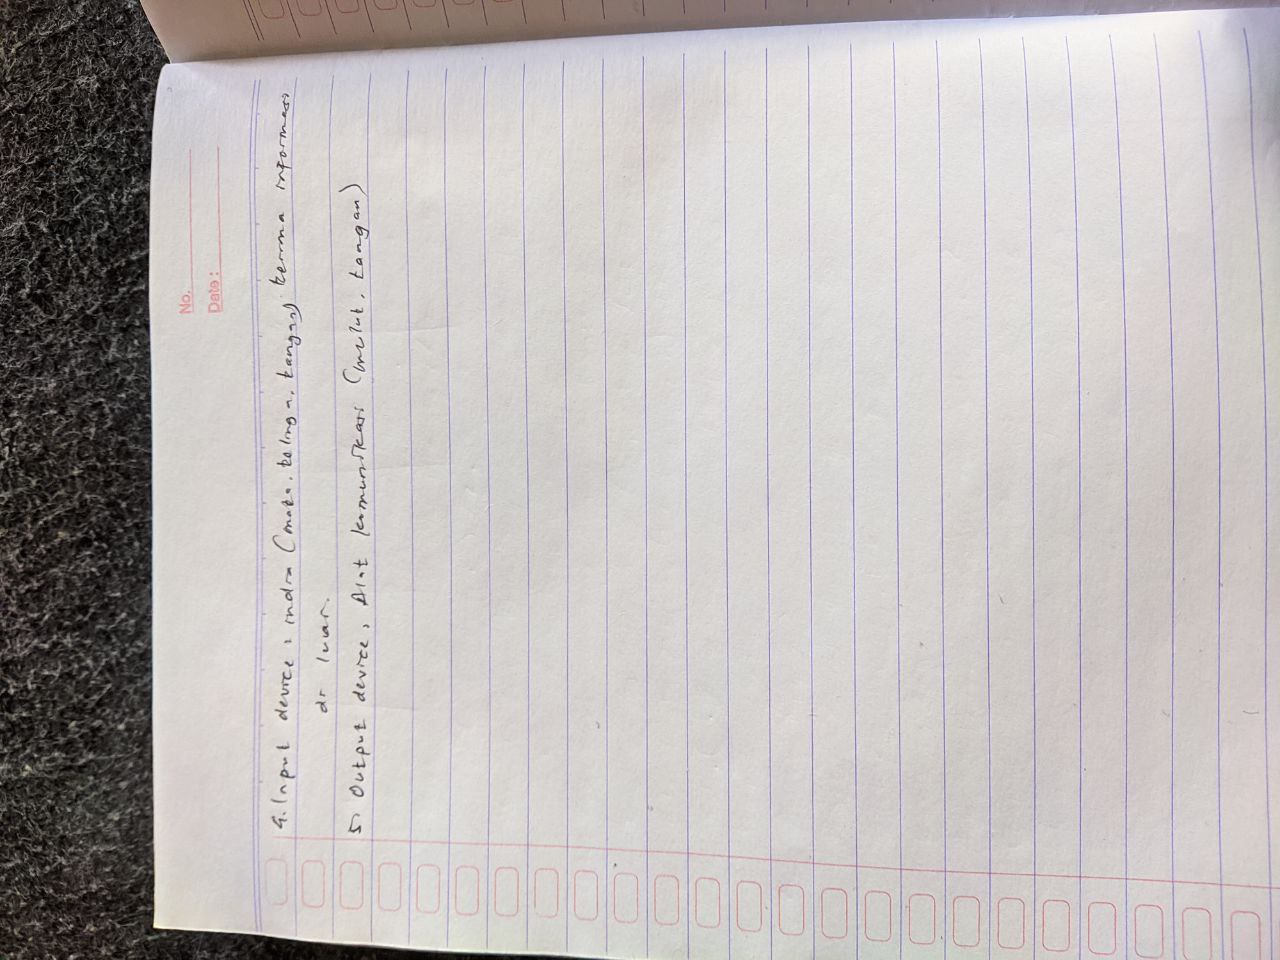 No.
Date:
4. Input device : indra (mata, telinga, tangan) terima informasi
di luar.
5. Output device, Alat komunikasi (mulut, tangan)